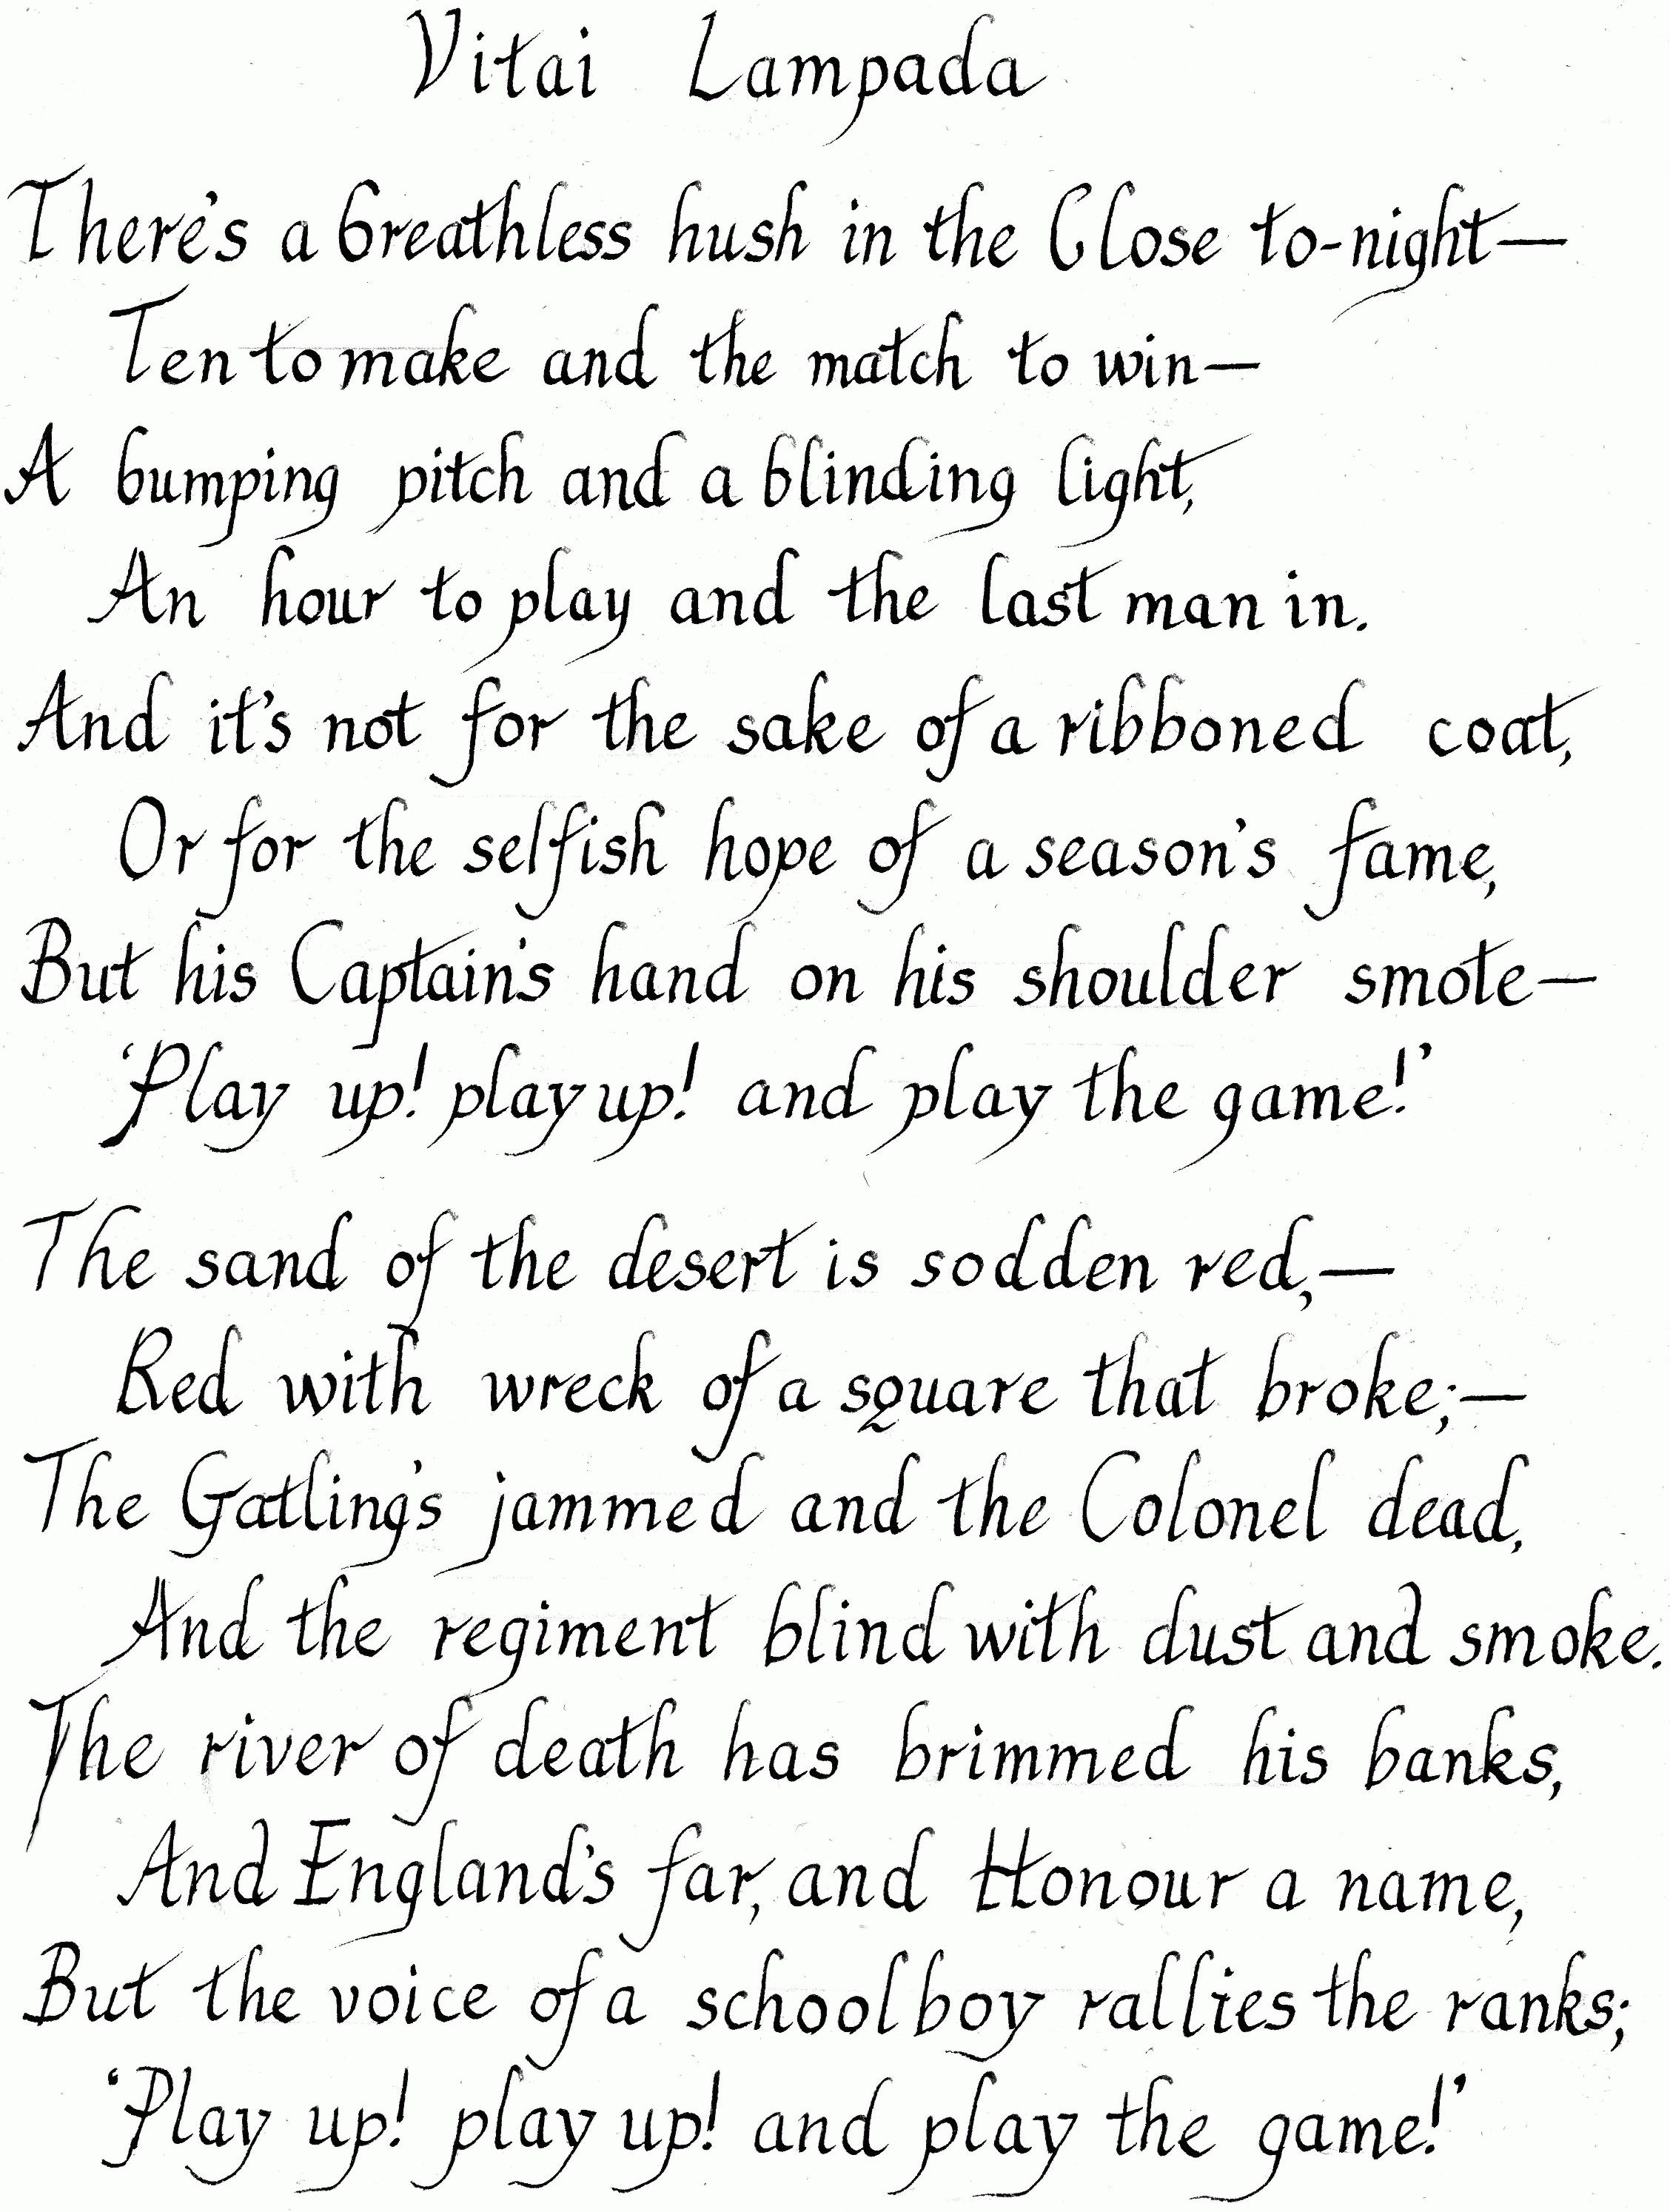 Vitai Lampada
There's a breathless hush in the Close to-night—
Ten to make and the match to win—
A bumping pitch and a blinding light,
An hour to play and the last man in.
And it's not for the sake of a ribboned coat,
Or for the selfish hope of a season's fame,
But his Captain's hand on his shoulder smote—
‘Play up! play up! and play the game!’
The sand of the desert is sodden red,—
Red with wreck of a square that broke;—
The Gatling's jammed and the Colonel dead,
And the regiment blind with dust and smoke.
The river of death has brimmed his banks,
And England's far, and Honour a name,
But the voice of a schoolboy rallies the ranks;
‘Play up! play up! and play the game!’